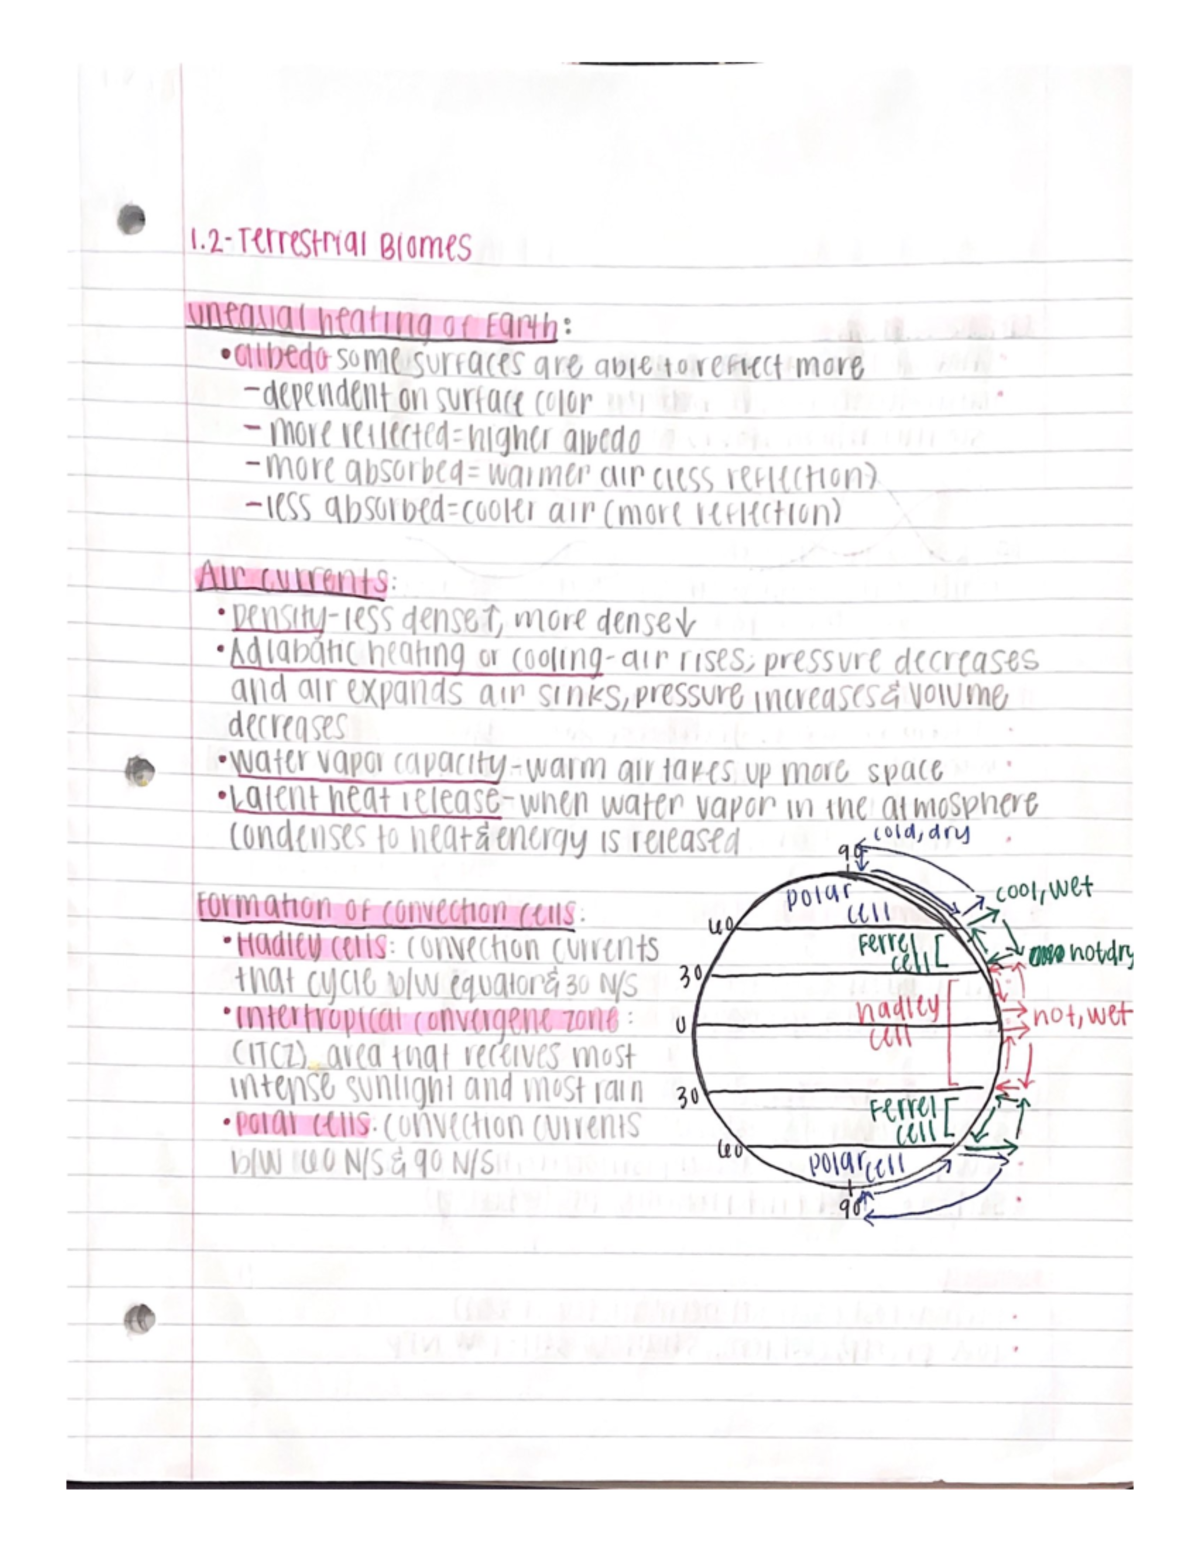 1.2-Terrestrial Biomes
unequal heating of Earth:
•albedo some surfaces are able to reflect more
-dependent on surface color
- more reflected=higher albedo
-more absorbed=warmer air (less reflection)
-less absorbed=cooler air (more reflection)
Air currents:
•Density-less dense↑, more dense↓
•Adiabatic heating or cooling-air rises; pressure decreases
and air expands air sinks, pressure increases & volume
decreases
•Water vapor capacity-warm air takes up more space
•Latent heat release-when water vapor in the atmosphere
condenses to heat & energy is released
Formation of convection cells:
•Hadley cells: convection currents
that cycle b/w equator & 30 N/S
•Intertropical convergene zone:
(ITCZ) area that receives most
intense sunlight and most rain
•Polar cells: convection currents
b/w 60 N/S & 90 N/S
cold, dry
90
polar
cell
cool, wet
60
Ferrel
cell
hot dry
30
hadley
cell
hot, wet
0
30
Ferrel
cell
60
polar cell
90